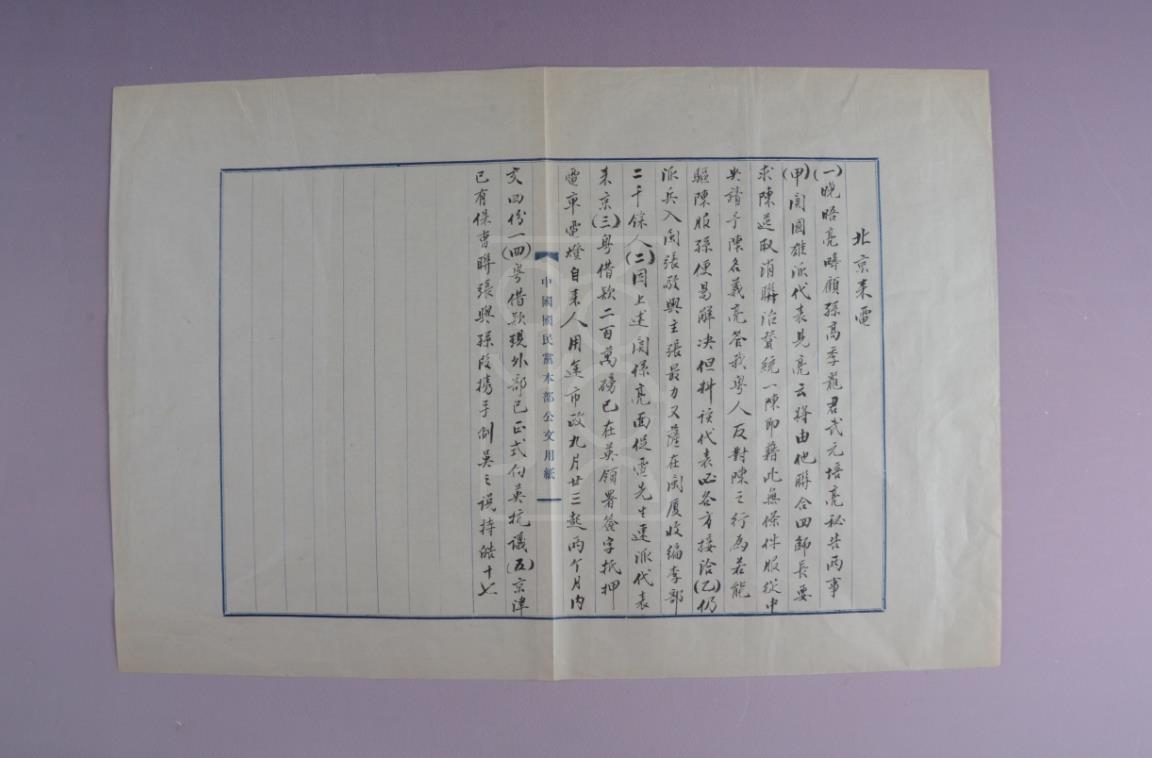 北京来電
(一)晚晤亮疇顧孫高季龍君武元培亮秘告两事
(甲)閩國雄派代表見亮云将由他聯合四師長要
求陳逆取消聯治賛統一陳即藉此無條件服從中
央請予陳名義亮答我粤人反對陳之行為若能
驅陳服孫便易解决但料该代表必各方接洽(乙)仍
派兵入闽張敬輿主張最力又薩在闽厦收编李部
二千餘人(二)因上述関係亮面促電先生速派代表
来京(三)粤借款二百萬磅已在英領署簽字抵押
電車電燈自来人用途市政九月廿三起两个月内
交四份一(四)粤借款現外部已正式向英抗議(五)京津
已有保曹聯張與孫段携手倒吴之説持皓十七
中國國民黨本部公文用紙